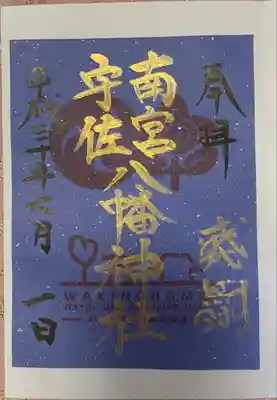 奉拝
感謝
南宮
宇佐
八幡神社
平成三十年六月 一日
WAKINOHAMA